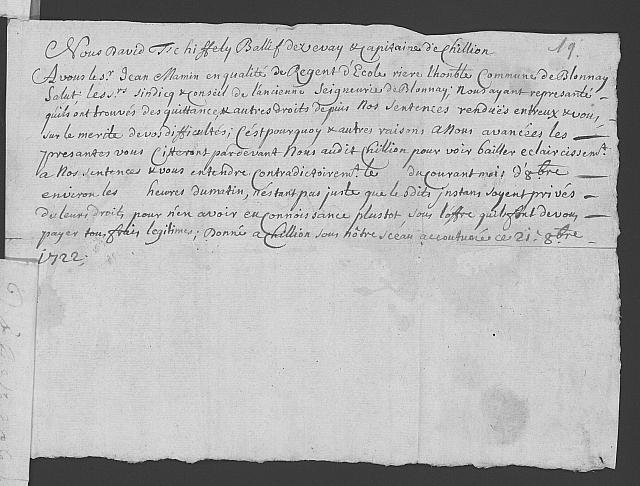 19.
Nous David Tschiffely Ballif de Vevay & Capitaine de Chillion
A vous le Sr. Jean Mamin en qualité de Regent d'Ecole riere l'honble Commune de Blonnay
Salut; les Srs sindicq & Conseil de l'ancienne Seigneurie de Blonnay; Nous ayant represanté
quils ont trouvés des quittances & autres droits depuis Nos sentences renduës entr'eux & vous,
sur le merite de vos difficultés; C'est pourquoy & autres raisons a Nous avancées les
presantes vous Citteront pardevant Nous audit Chillion pour voir bailler eclaircissemt.
a Nos sentences & vous entendre contradictoiremt. le du courant mois d'8bre
environ les heures du matin, n'estant pas juste que lesdits instans soyent privés
de leurs droits pour n'en avoir eu connoissance plustot, sous l'offre quils font de vous
payer tous frais legitimes; Donné a Chillion sous nôtre sceau accoutumé ce 21e 8bre
1722;